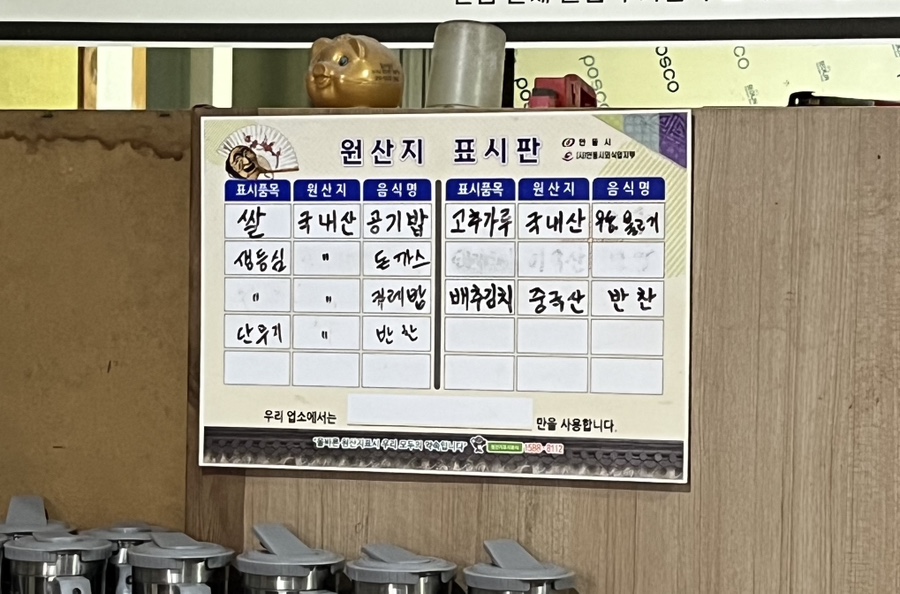 posco
posco
co
원산지 표시판
안동시
(사)안동시외식업지부
표시품목 원산지 음식명 표시품목 원산지 음식명
쌀 국내산 공기밥 고추가루 국내산
생등심 " 돈까스
" " 카레밥 배추김치 중국산 반찬
단무지 " 반찬
우리 업소에서는 만을 사용합니다.
"올바른 원산지표시 우리 모두의 약속입니다" 1588-8112